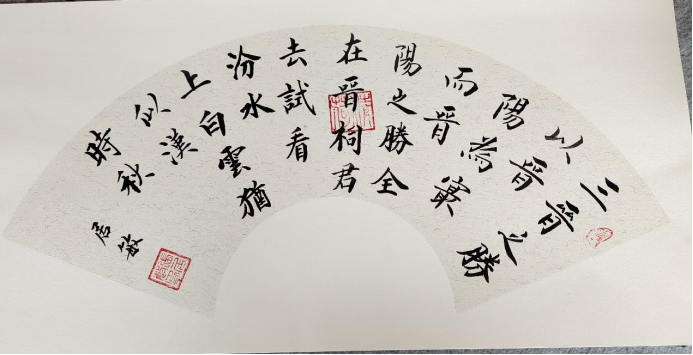 三晉之勝
以晋
陽為最
而晋
陽之勝全
在晋祠君
去試看
汾水
上白雲猶
似漢
時秋
居敏